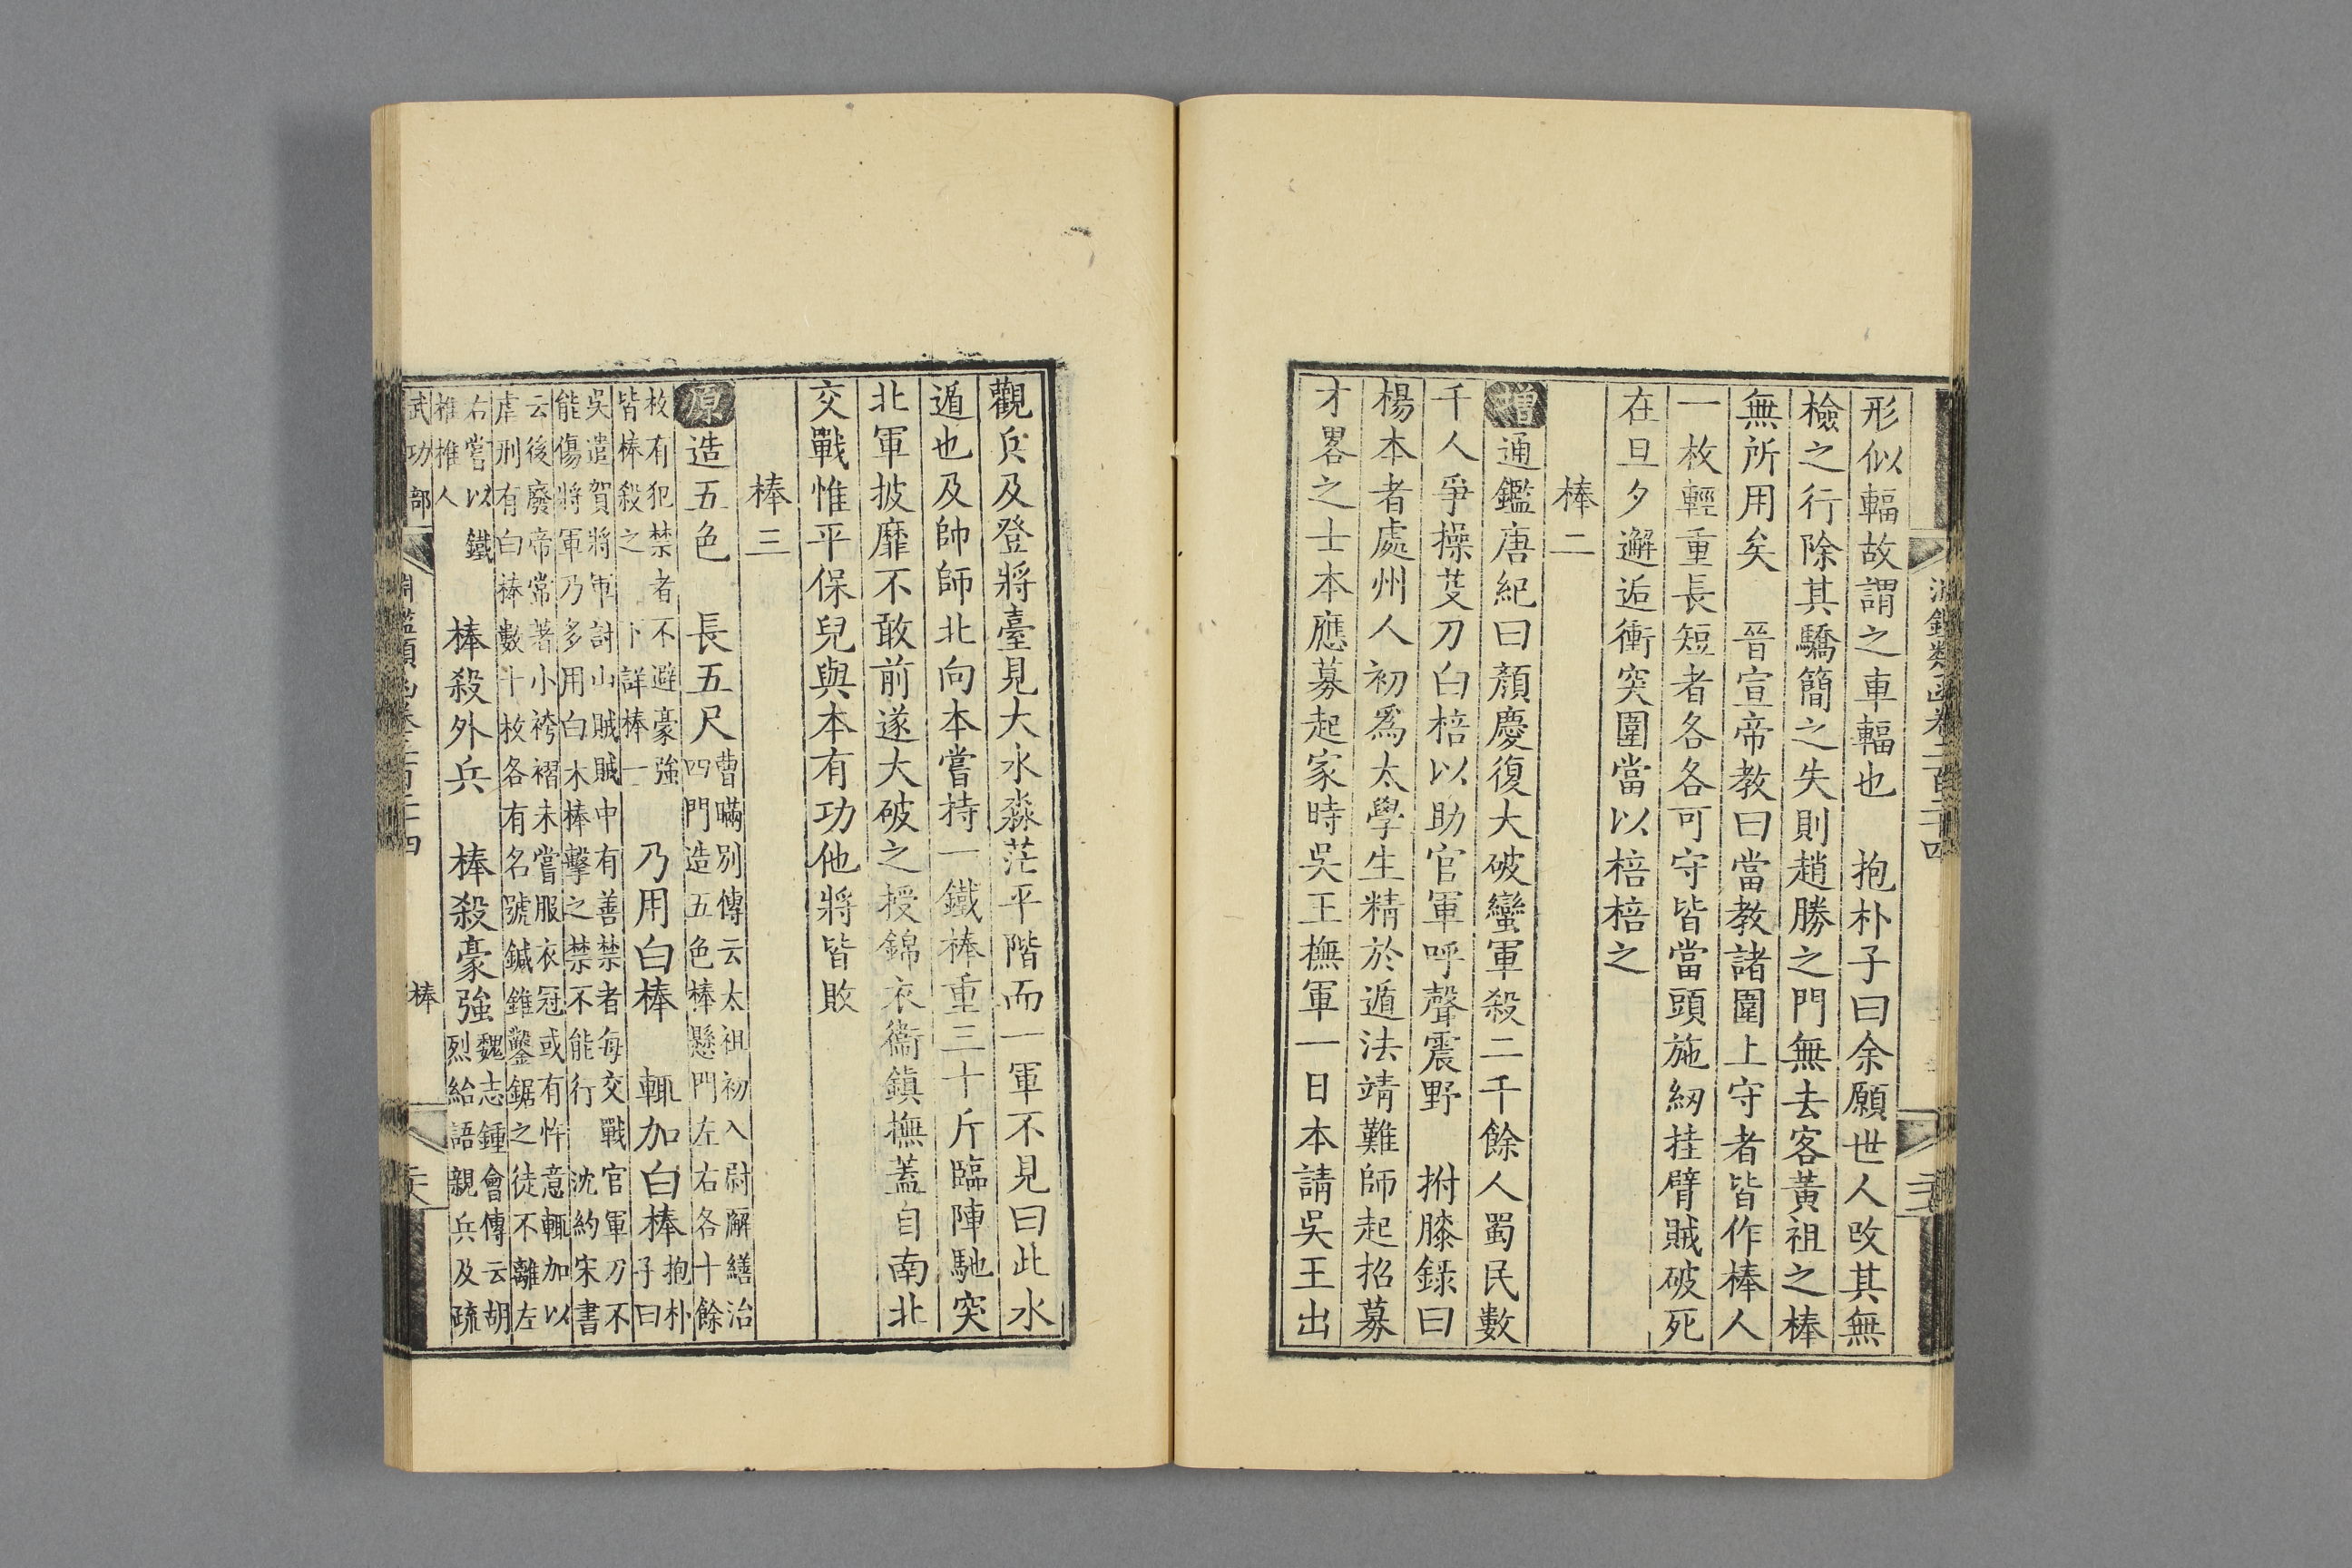 形似輻故謂之車輻也　抱朴子曰余願世人改其無
檢之行除其驕簡之失則趙勝之門無去客黃祖之棒
無所用矣　晉宣帝教曰當教諸圍上守者皆作棒人
一枚輕重長短者各各可守皆當頭施紉挂臂賊破死
在旦夕邂逅衝突圍當以棓棓之
棒二
增通鑑唐紀曰顏慶復大破蠻軍殺二千餘人蜀民數
千人爭操芟刀白棓以助官軍呼聲震野　拊膝錄曰
楊本者處州人初爲太學生精於遁法靖難師起招募
才畧之士本應募起家時吳王撫軍一日本請吳王出
觀兵及登將臺見大水淼茫平階而一軍不見曰此水
遁也及帥師北向本嘗持一鐵棒重三十斤臨陣馳突
北軍披靡不敢前遂大破之授錦衣衞鎮撫蓋自南北
交戰惟平保兒與本有功他將皆敗
棒三
原造五色　長五尺曹瞞別傳云太祖初入尉廨繕治
四門造五色棒懸門左右各十餘
枚有犯禁者不避豪強
皆棒殺之下詳棒一　乃用白棒　輒加白棒抱朴
子曰
吳遣賀將軍討山賊賊中有善禁者每交戰官軍刀不
能傷將軍乃多用白木棒擊之禁不能行　沈約宋書
云後廢帝常著小袴褶未嘗服衣冠或有忤意輒加以
虐刑有白棒數十枚各有名號鍼錐鑿鋸之徒不離左
右嘗以鐵
椎椎人　棒殺外兵　棒殺豪強魏志鍾會傳云胡
烈給語親兵及疏
武功部
淵鑑類函卷二百二十四
棒